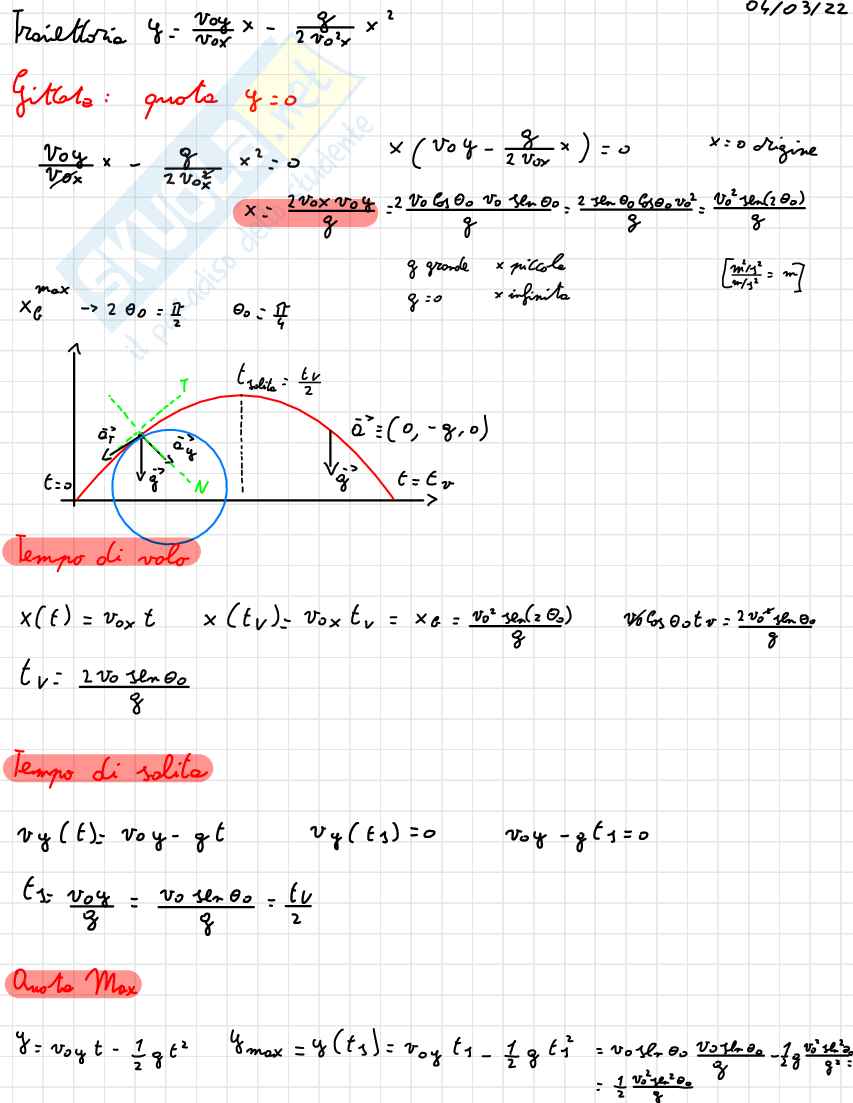 04/03/22
Traiettoria y = v₀y/v₀x x - g/(2 v₀²x) x²
Gittata: quota y = 0
v₀y/v₀x x - g/(2 v₀x²) x² = 0    x (v₀y - g/(2 v₀x) x) = 0    x = 0 origine
x = 2v₀x v₀y/g = 2 v₀ cos θ₀ v₀ sen θ₀/g = 2 sen θ₀ cos θ₀ v₀²/g = v₀² sen(2θ₀)/g
g grande x piccolo    [m²/s²/m/s² = m]
g = 0 x infinita
x_G^max -> 2 θ₀ = π/2    θ₀ = π/4
t salita = t_v/2
T
a⃗_T
a⃗_y
g⃗
N
a⃗ = (0, -g, 0)
g⃗
t = 0
t = t_v
Tempo di volo
x(t) = v₀x t    x(t_v) = v₀x t_v = x_G = v₀² sen(2θ₀)/g    v₀ cos θ₀ t_v = 2v₀² sen θ₀/g
t_v = 2 v₀ sen θ₀/g
Tempo di salita
v_y(t) = v₀y - gt    v_y(t_s) = 0    v₀y - g t_s = 0
t_s = v₀y/g = v₀ sen θ₀/g = t_v/2
Quota Max
y = v₀y t - 1/2 g t²    y_max = y(t_s) = v₀y t_s - 1/2 g t_s² = v₀ sen θ₀ v₀ sen θ₀/g - 1/2 g v₀² sen² θ₀/g² =
= 1/2 v₀² sen² θ₀/g
SKUOLA.net
il paradiso dello studente